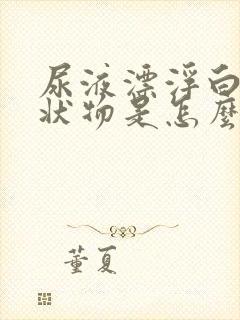 尿液漂浮白
状物是怎麼
董夏